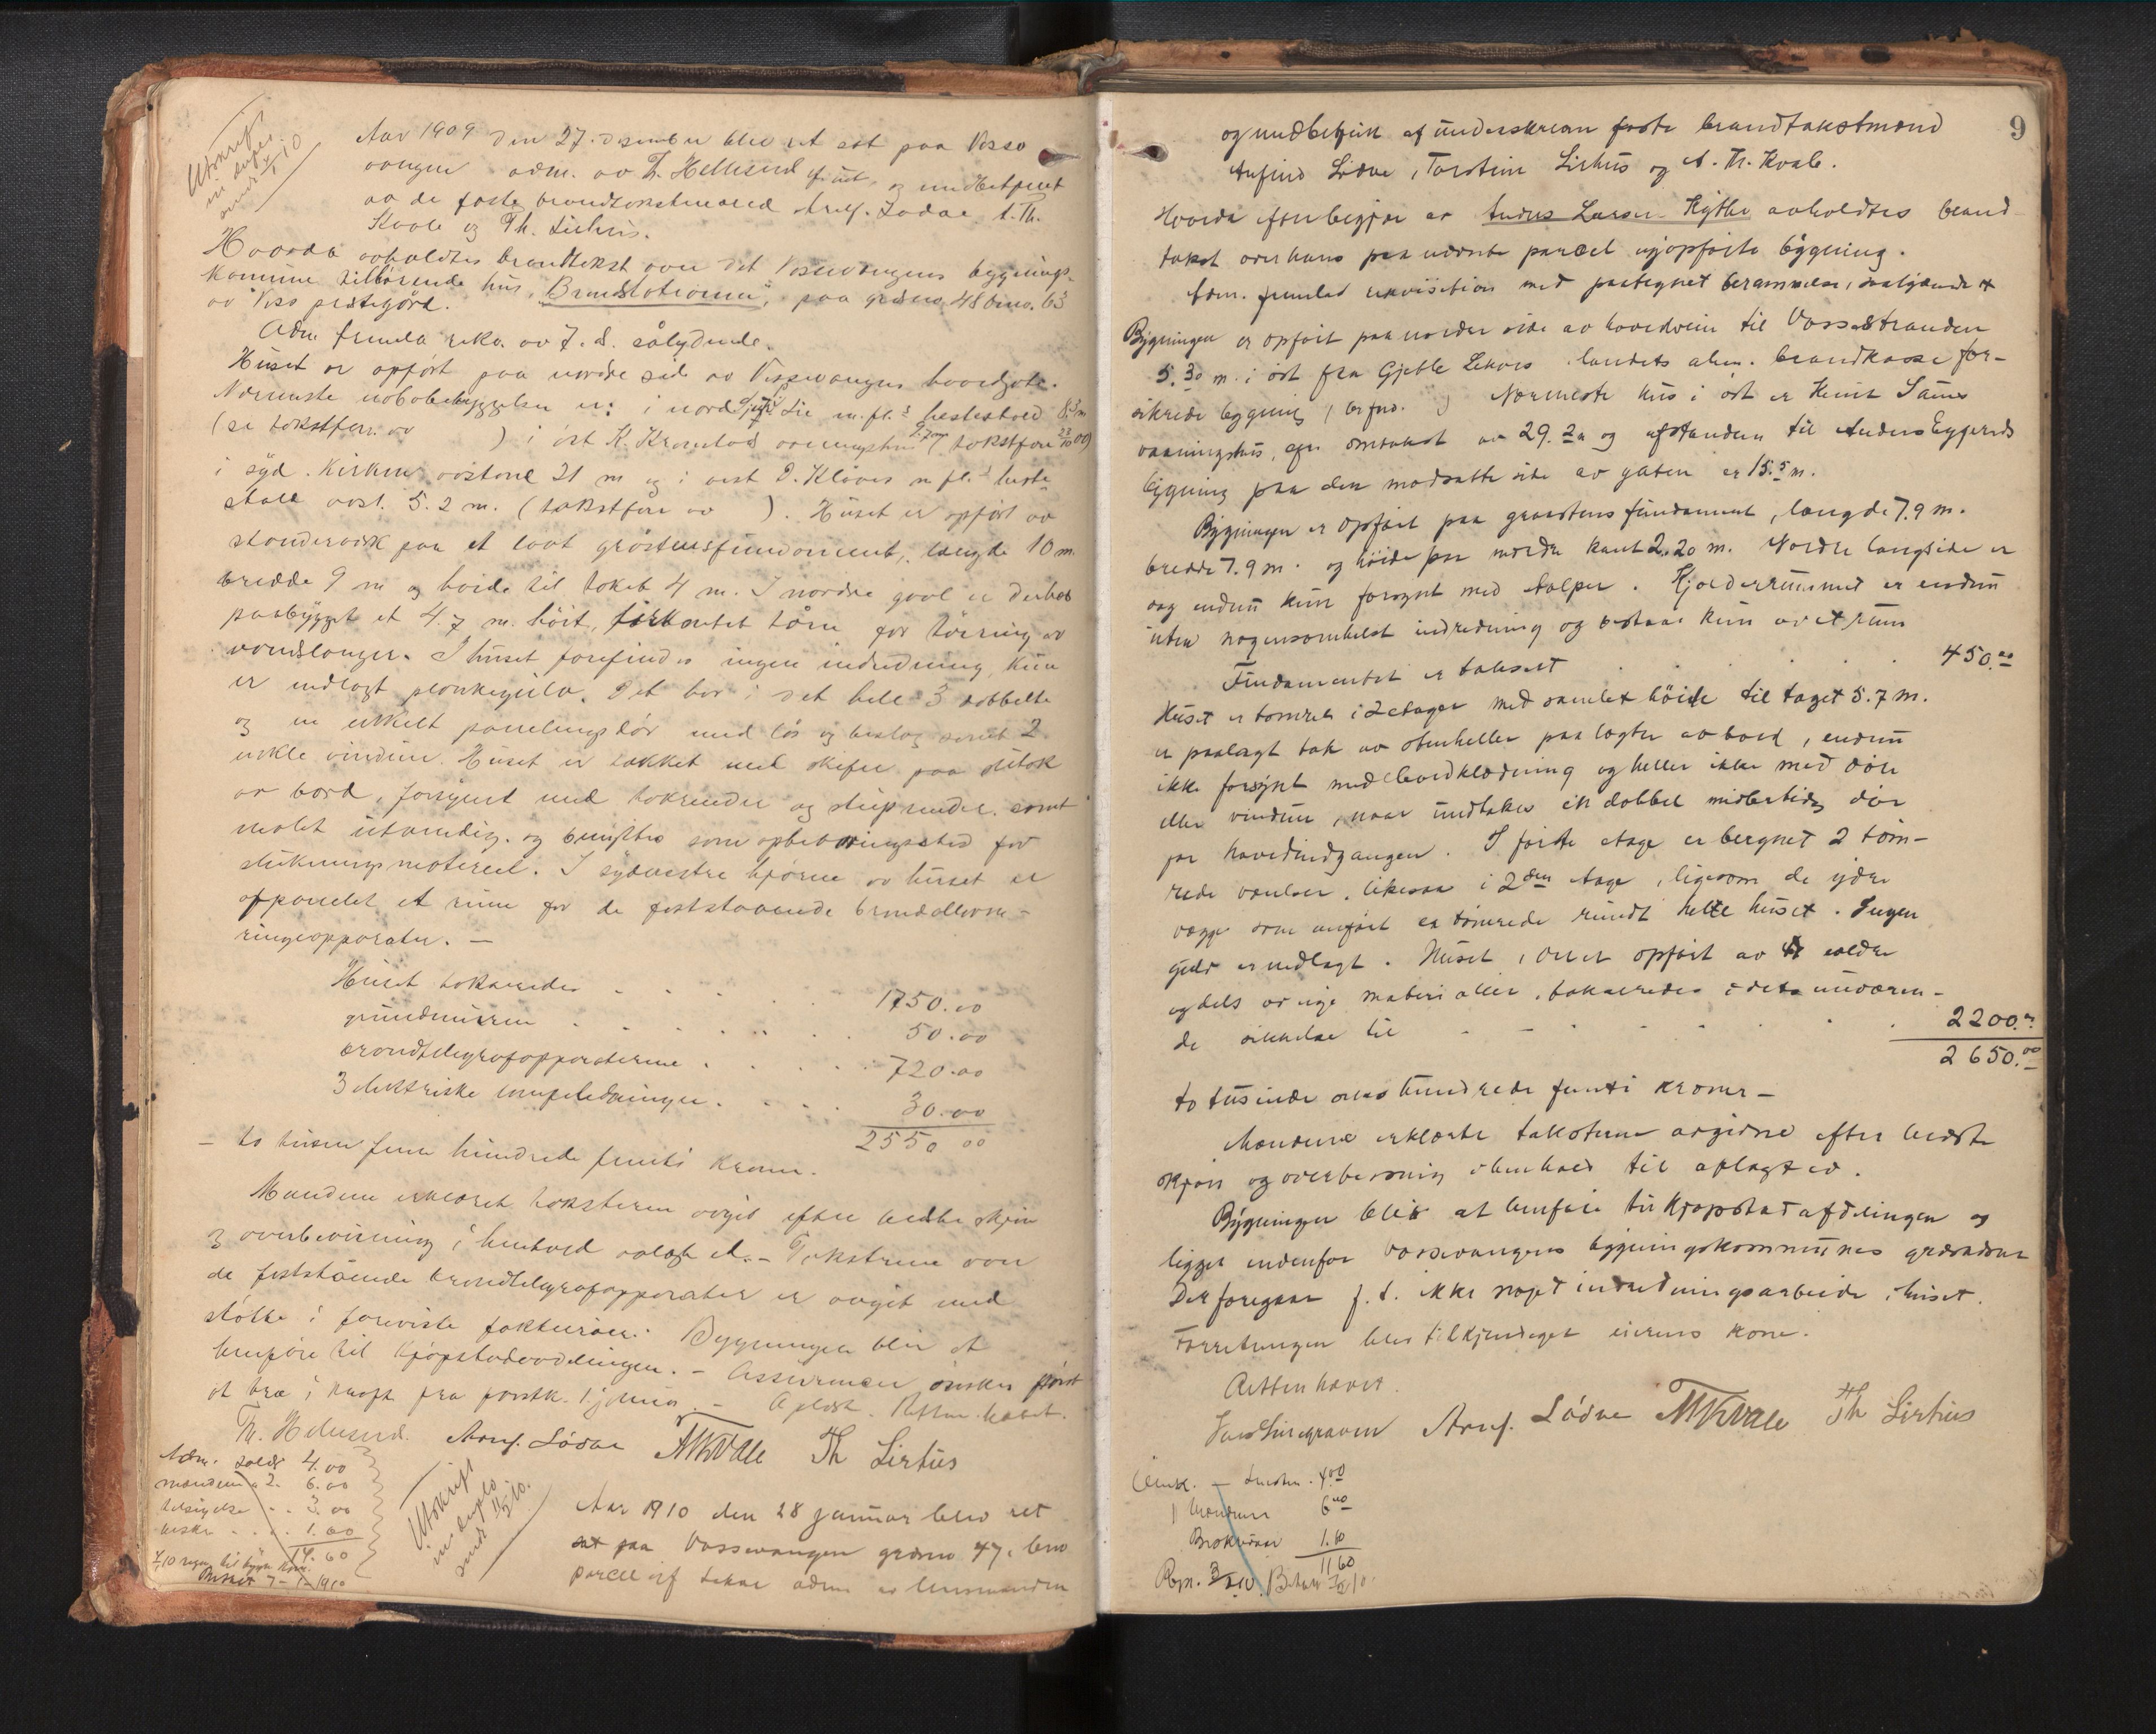 Utskrift
in duplo
sendt 1/10
Aar 1909 den 27. desember blev ret sat paa Vosse
vangen adm. av T. Hellesnd og undbetjent
av de faste brandtakstmænd Arnf. Lødve A. Th.
Kvale og Th. Lirhus.
Hvorda avholdtes brandtakst over det Vossevangens bygnings-
kommune tilhørende hus, "Brandstationen", paa grdsno. 48 brno. 63
av Voss prestegård.
Adm. fremla rekv. av 7. d. sålydende.
Huset er opført paa nordre side av Vossevangens hovedgate.
Nærmeste nabobebyggelse er: i nord Lie m. fl.s hestestald 8.3 m
(se takstforr. av ) i øst K. Kronstad vaaningshus (takstforr 22/10 00)
i syd Kirken avstand 21 m og i vest O. Kløves m fl.s heste
stall avst. 5.2 m. (takstforr av ). Huset er opført av
standerværk paa et lavt gråstensfundament, længde 10 m.
bredde 9 m og høide til taket 4 m. I nordre gavl er derhos
paabygget et 4.7 m. høit, firkantet tårn for tørring av
vandslanger. I huset forefindes ingen indredning, kun
er indlagt plankegulv. Det har i det hele 3 dobbelte
og en enkelt panelingsdør med lås og beslag samt 2
enkle vinduer. Huset er takket med skifer paa stitak
av bord, forsynet med takrender og stuprender samt
malet utvendig. og benyttes som opbevaringssted for
slukningsmateriel. I sydvestre hjørne av huset er
oppanelet et rum for de faststaaende brandallarme-
ringsapparater. —
Huset takseredes . . . . 1750.00
grundmuren . . . . . 50.00
brandtelegrafapparaterne . . . . 720.00
3 elektriske lampeledninger . . . . 30.00
2550 00
— to tusen fem hundrede femti kroner.
Mændene erklæret taksterne avgit efter bedste skjøn
og overbevisning i henhold avlagt ed. — Taksterne over
de faststående brandtelegrafapparater er avgit med
støtte i foreviste fakturaer. Bygningen blir at
henføre til kjøpstadavdelingen. — Assurancen ønskes først
at træ i kraft fra førstk. 1 januar. — Oplæst. Retten hævet.
Th. Hellesnd. Arnf. Lødve AThKvale Th Lirhus
Adm. salær 4.00
mændene a 2. 6.00
tilsigelse . . 3.00
1.60
14.60
7-1-1910
Utskrift
in duplo
sendt 11/2 10.
Aar 1910 den 28 januar blev ret
sat paa Vossevangen grdsno 47, brno
parcel af adm. av lensmanden
9
og undbetjent af underskrevne faste brandtakstmænd
Anfind Lødve, Torstein Lirhus og A. Th. Kvale.
Hvorda efter begjær av Anders Larsen Rythe avholdtes brand
takst over hans paa nævnte parcel nyopførte bygning.
Adm. fremlad rekvisition med paategnet berammelse, saalydende ⁜
Bygningen er opført paa nordre side av hovedveien til Vossestranden
5.30 m. i øst fra Gjeble Lekves i landets alm. brandkasse for-
sikrede bygning, brfno. . Nærmeste hus i øst er Knut Sæves
vaaningshus, afs omtakst av 29. 2 m og afstanden til Anders Eggereids
bygning paa den modsatte side av gaten er 15.5 m.
Bygningen er opført paa graastens fundament, længde 7.9 m.
bredde 7.9 m. og høide paa nordre kant 2.20 m. Nordre langside er
dog endnu kun forsynt med stolper. Kjælderrummet er endnu
uten nogensomhelst indredning og bestaar kun av et rum
Fundamentet er taksert . . . . 450.00
Huset er tømret i 2 etager med samlet høide til taget 5.7 m.
er paalagt tak av stenheller paa lægter av bord, endnu
ikke forsynt med bordklædning og heller ikke med døre
eller vinduer, naar undtakes en dobbel midlertidig dør
for hovedindgangen. I første etage er beregnet 2 tøm-
rede værelser, likesaa i 2den etage, ligesom de ydre
vægge som anført er tømrede rundt hele huset. Ingen
gulv er nedlagt. Huset, der er opført av dels ældre
og dels av nye materialler, takseredes i dets nuværen-
de skikkelse til . . . . . 2200.00
2650.00
to tusinde seks hundrede femti kroner —
Mændene erklærte taksterne avgivne efter bedste
skjøn og overbevisning i henhold til aflagt ed.
Bygningen blir at henføre til kjøpstadafdelingen og
ligger indenfor Vossevangens bygningskommunes grænser
Det foregaar f. t. ikke noget indredningsarbeide i huset.
Forretningen blev tilkjendegit eierens kone.
Retten hævet.
Arnf. Lødve AThKvale Th Lirhus
Lensm. 4.00
Mændene 6.00
1.60
1160